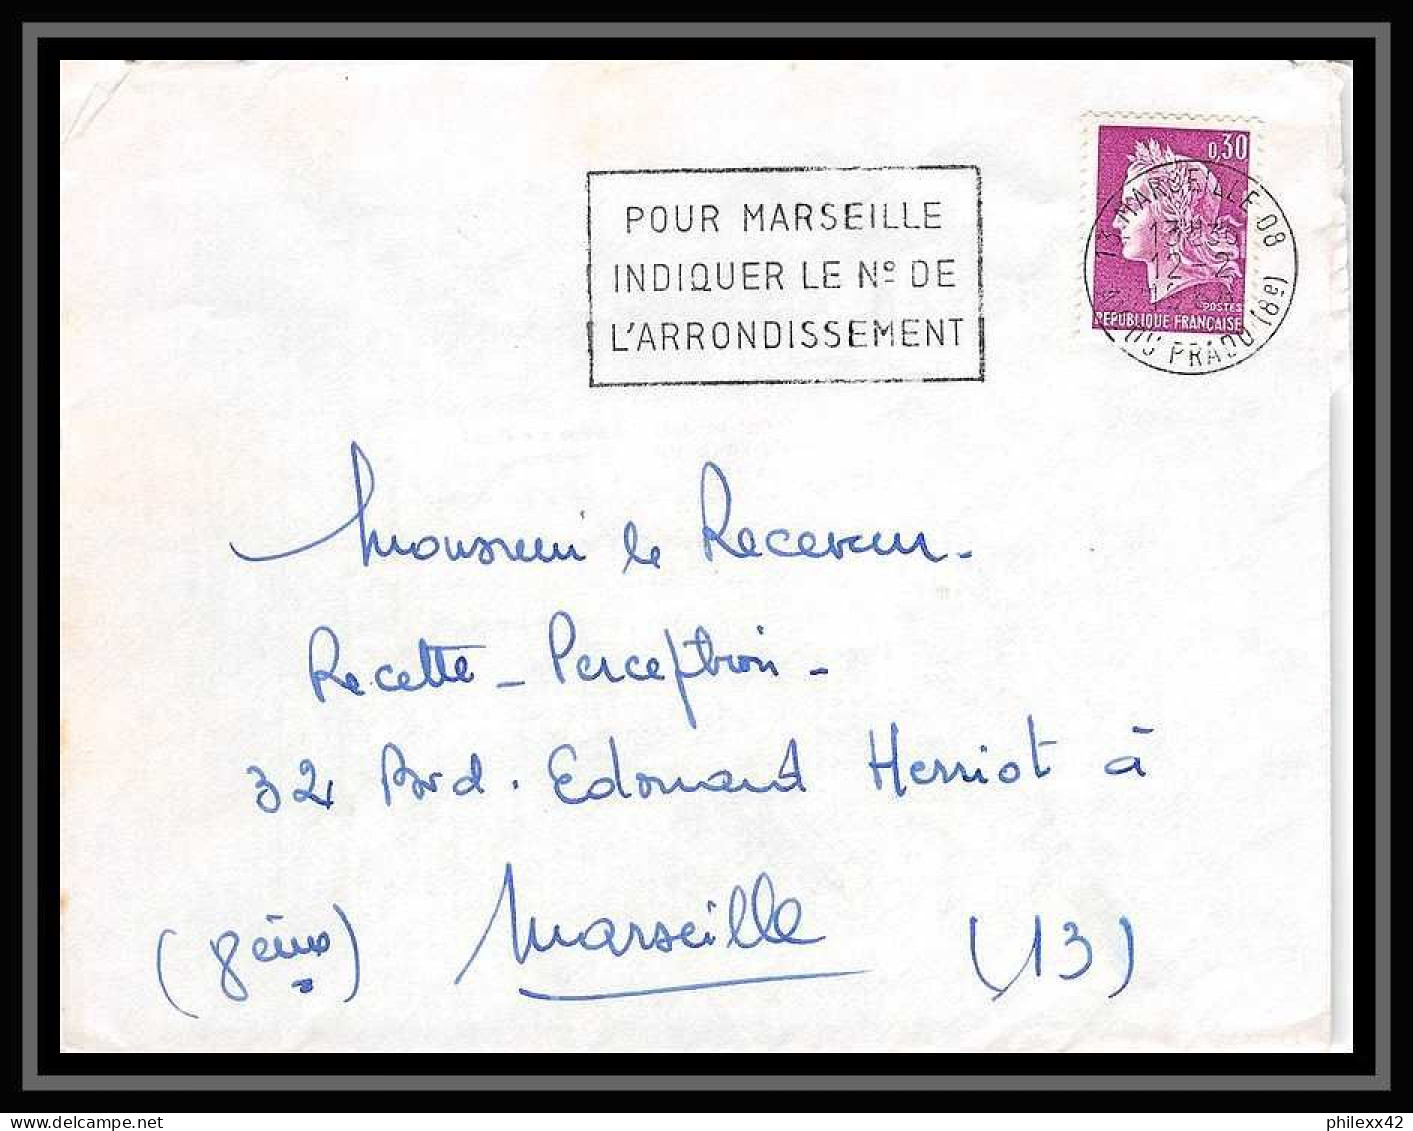 0,30
POSTES
REPUBLIQUE FRANÇAISE
13 MARSEILLE 08
13H35
12-2
DU PRADO (8e)
POUR MARSEILLE
INDIQUER LE Nº DE
L'ARRONDISSEMENT
Monsieur le Receveur-
Recette - Perception -
32 Bvd. Edouard Herriot à
(8ème) Marseille (13)
www.delcampe.net
philexx42